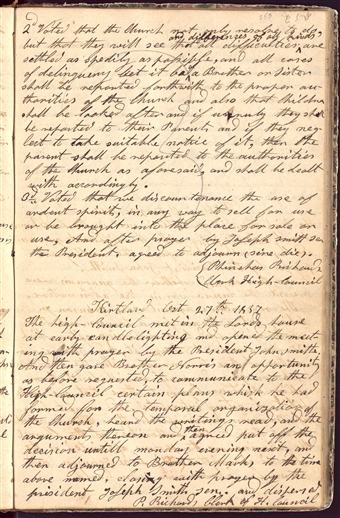 2d Voted that the Church not only resolve to do,
any differences, of any kind;
but that they will see that all difficulties, are
settled as spedily as possible, and all cases
of delinquency let it be a Brother or Sister
shall be reported forthwith to the proper au-
thorities of the Church and also that Children
shall be looked after and if unruly they shall
be reported to their Parents and if they neg-
lect to take suitable notice of it, then the
parent shall be reported to the authorities
of the Church as aforesaid, and shall be dealt
with accordingly.
3d. Voted that we discountenance the use of
ardent spirits, in any way to sell for use
or be brought into the place for sale or
use, And after prayer by Joseph Smith sen
the President, agreed to adjourn (sine die).
Phinehas Richards
Clerk High-Council
Kirtland Oct 27th 1837
The high-Council met in the Lords house
at early candle-lighting and opened the meet
ing with prayer by the President John Smith,
And then gave Brother Norris an opportunity
as before requested, to communicate to the
High-Council certain plans which he had
formed for the temporal organization of
the Church, heard the writings read, and the
arguments thereon and then agreed put off the
decision untill monday evening next, and
then adjourned to Brother Marks, to the time
above named, closing with prayer by the
president Joseph Smith sen. and dispersed,
P. Richards Clerk of H. Council